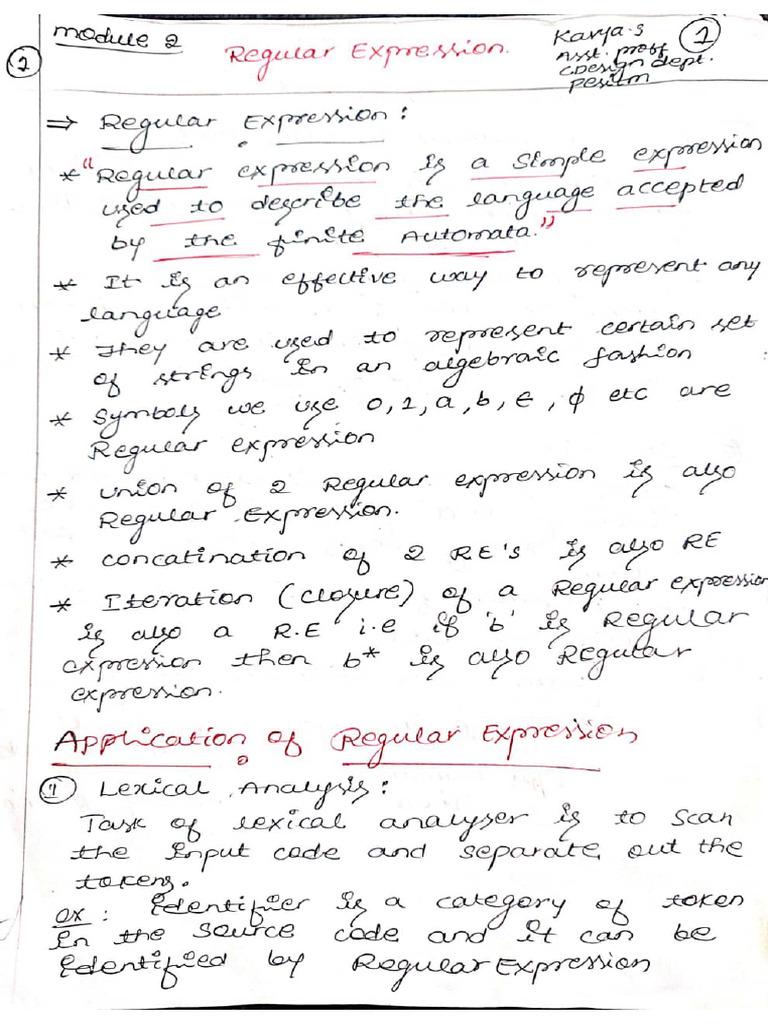 module 2
Regular Expression.
Kavya.S
Asst. proff
CDesign dept.
Pesitm
1
2
⇒ Regular Expression:
* "Regular expression is a simple expression
used to describe the language accepted
by the finite Automata."
* It is an effective way to represent any
language
* They are used to represent certain set
of strings in an algebraic fashion
* Symbols we use 0, 1, a, b, ∈, ϕ etc are
Regular expression
* union of 2 Regular expression is also
Regular Expression.
* concatination of 2 RE's is also RE
* Iteration (closure) of a Regular expression
is also a R.E i.e if 'b' is Regular
expression then b* is also Regular
expression.
Application of Regular Expression
1 Lexical Analysis:
Task of lexical analyser is to scan
the input code and separate out the
tokens.
ex: Identifier is a category of token
in the source code and it can be
identified by Regular Expression